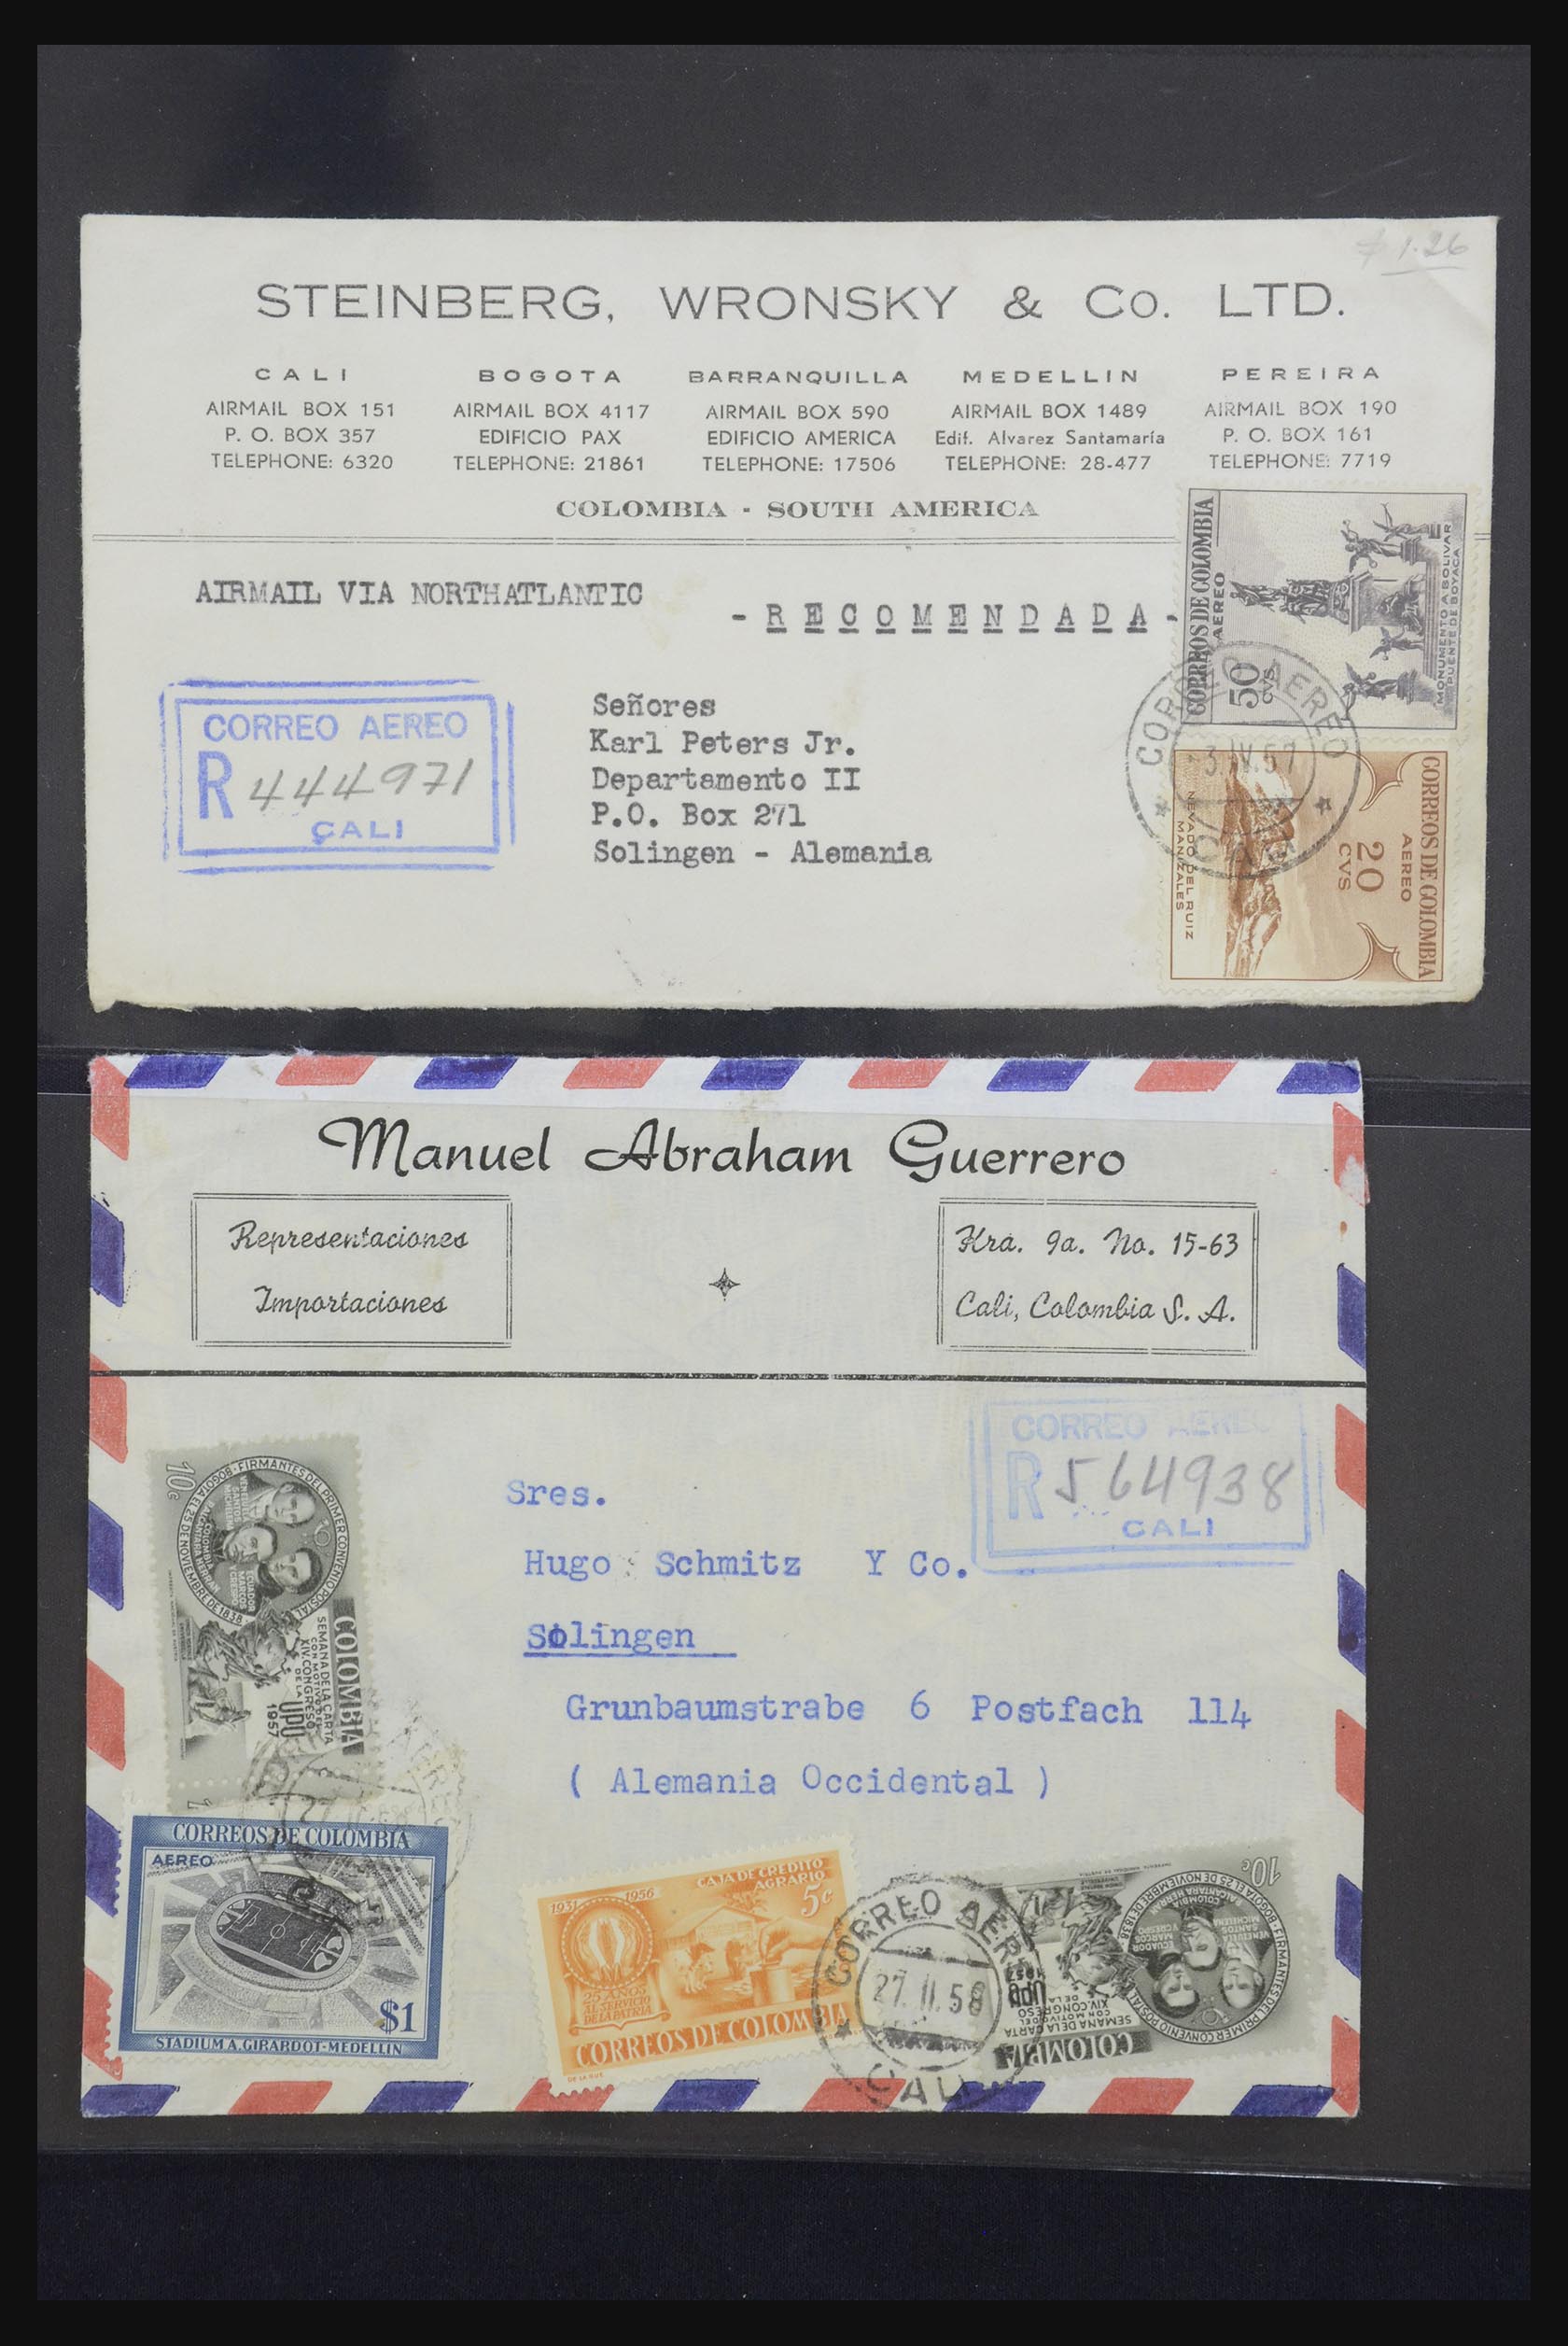 $ 1.26
STEINBERG, WRONSKY & Co. LTD.
CALI
AIRMAIL BOX 151
P. O. BOX 357
TELEPHONE: 6320
BOGOTA
AIRMAIL BOX 4117
EDIFICIO PAX
TELEPHONE: 21861
BARRANQUILLA
AIRMAIL BOX 590
EDIFICIO AMERICA
TELEPHONE: 17506
MEDELLIN
AIRMAIL BOX 1489
Edif. Alvarez Santamaría
TELEPHONE: 28-477
PEREIRA
AIRMAIL BOX 190
P. O. BOX 161
TELEPHONE: 7719
COLOMBIA - SOUTH AMERICA
AIRMAIL VIA NORTHATLANTIC
-RECOMENDADA-
CORREO AEREO
R 444971
CALI
Señores
Karl Peters Jr.
Departamento II
P.O. Box 271
Solingen - Alemania
CORREOS DE COLOMBIA
AEREO
50 CVS
MONUMENTO A BOLIVAR
PUENTE DE BOYACA
CORREO AEREO
3.IV.57
CORREOS DE COLOMBIA
AEREO
20
CVS
NEVADO DEL RUIZ
MANIZALES
Manuel Abraham Guerrero
Representaciones
Importaciones
Kra. 9a. No. 15-63
Cali, Colombia S. A.
CORREO AEREO
R 564938
CALI
Sres.
Hugo Schmitz Y Co.
Solingen
Grunbaumstrabe 6 Postfach 114
( Alemania Occidental )
10c
FIRMANTES DEL PRIMER CONVENIO POSTAL
BOGOTA EL 25 DE NOVIEMBRE DE 1838
COLOMBIA
SEMANA DE LA CARTA
CON MOTIVO DEL
XIV. CONGRESO
DE LA
UPU
1957
CORREOS DE COLOMBIA
AEREO
$1
STADIUM A. GIRARDOT-MEDELLIN
1931 1956
CAJA DE CREDITO
AGRARIO
5c
25 AÑOS
AL SERVICIO
DE LA PATRIA
CORREOS DE COLOMBIA
CORREO AEREO
27.II.58
CALI
10c
FIRMANTES DEL PRIMER CONVENIO POSTAL
BOGOTA EL 25 DE NOVIEMBRE DE 1838
VENEZUELA
SANTOS
MICHELENA
ECUADOR
MARCOS
COLOMBIA
ALCANTARA HERRAN
COLOMBIA
SEMANA DE LA CARTA
CON MOTIVO DEL
XIV. CONGRESO
DE LA
UPU
1957